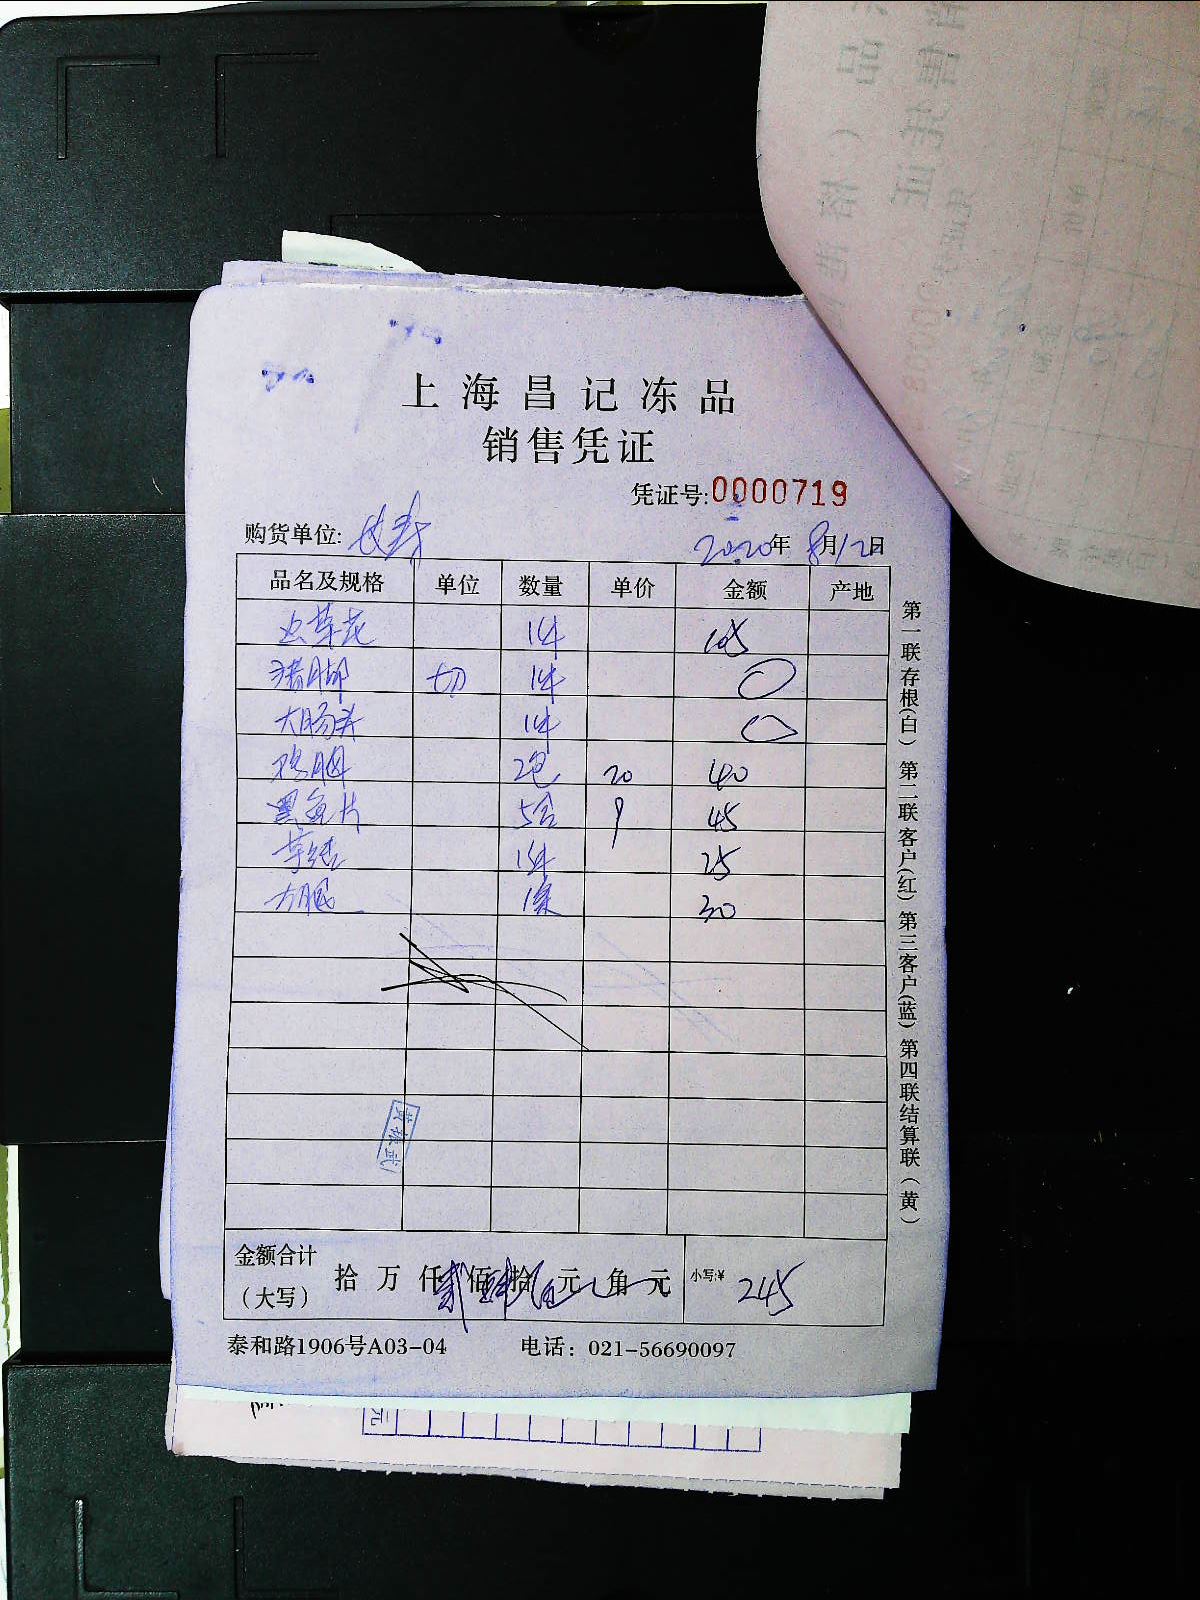 上海昌记冻品
销售凭证
凭证号:0000719
购货单位: 长寿
2020年 8月12日
品名及规格 单位 数量 单价 金额 产地
虫草花 1件 105
猪脚 切 1件 0
大肠头 1件 0
2包 20 40
黑鱼片 5合 9 45
1件 25
大肥 30
金额合计
(大写) 拾 万 仟 贰 佰 肆 拾 伍 元 角 元 小写:¥ 245
泰和路1906号A03-04 电话: 021-56690097
第一联存根(白) 第二联客户(红) 第三客户(蓝) 第四联结算联(黄)